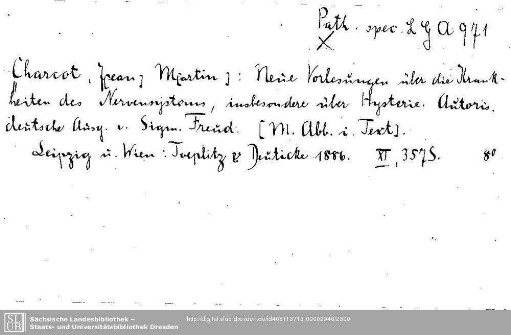 Path. spec. L G A 971
X
Charcot, J[ean] M[artin]: Neue Vorlesungen über die Krank-
heiten des Nervensystems, insbesondere über Hysterie. Autoris.
deutsche Ausg. v. Sigm. Freud. [M. Abb. i. Text].
Leipzig u. Wien: Toeplitz & Deuticke 1886. XI, 357 S. 8°
SLUB
Sächsische Landesbibliothek –
Staats- und Universitätsbibliothek Dresden